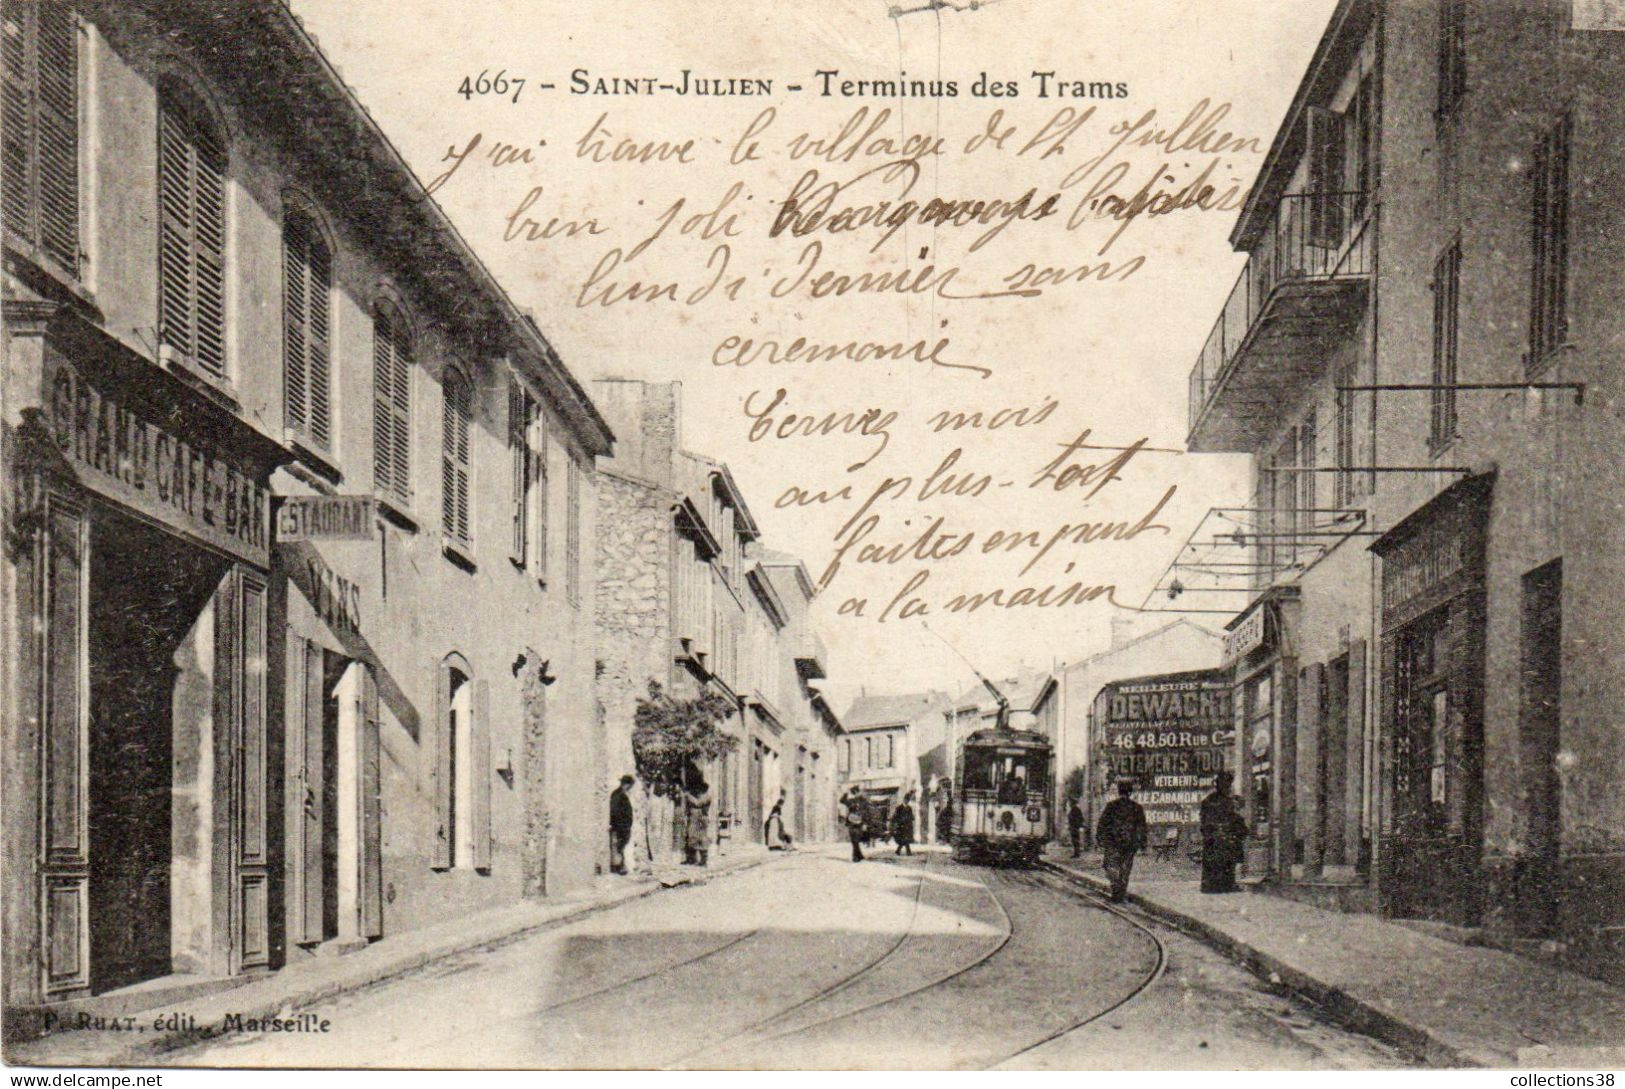 4667 - SAINT-JULIEN - Terminus des Trams
J'ai trouve le village de St Jullien
bien joli
lundi dernier sans
cérémonie
moi
au plus-tost
faites en part
a la maison
GRAND CAFE-BAR
ESTAURANT
VINS
MEILLEURE
DEWACHT
46.48.50.Rue C
VETEMENTS TOU
VÊTEMENTS
P. RUAT, édit., Marseille
collections38